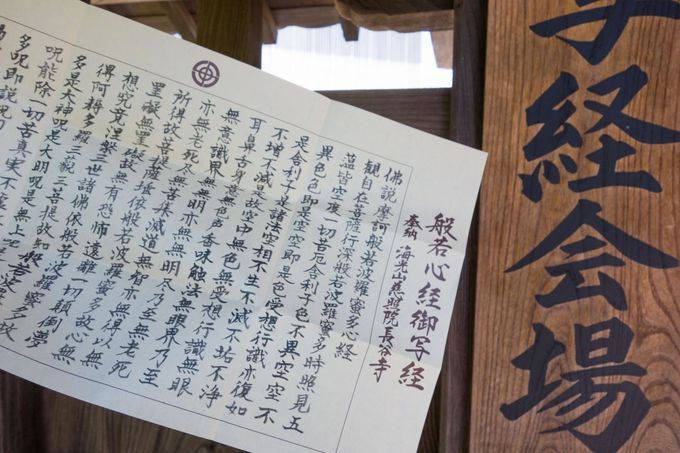 写経会場
般若心経御写経
奉納 海光慈照院 長谷寺
佛説摩訶般若波羅蜜多心経
観自在菩薩行深般若波羅蜜多時照見五
蘊皆空度一切苦厄舎利子色不異空空不
異色色即是空空即是色受想行識亦復如
是舎利子是諸法空相不生不滅不垢不浄
不増不減是故空中無色無受想行識無眼
耳鼻舌身意無色声香味触法無眼界乃至
無意識界無無明亦無無明尽乃至無老死
亦無老死尽無苦集滅道無智亦無得以無
所得故菩提薩埵依般若波羅蜜多故心無
罣礙無罣礙故無有恐怖遠離一切顛倒夢
想究竟涅槃三世諸佛依般若波羅蜜多故
得阿耨多羅三藐三菩提故知般若波羅
多是大神呪是大明呪是無上呪
呪能除一切苦真実不虚
多呪即説呪